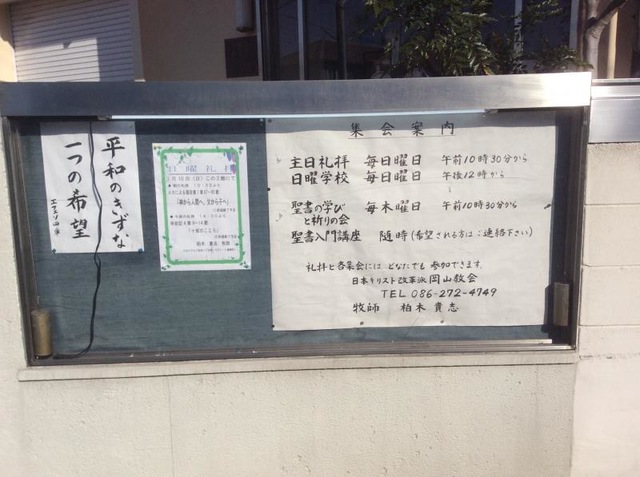 平和のきずな
一つの希望
エフェソ四章
日曜礼拝
「神から人間へ、父から子へ」
集会案内
主日礼拝 毎日曜日 午前10時30分から
日曜学校 毎日曜日 午後12時から
聖書の学びと祈りの会 毎木曜日 午前10時30分から
聖書入門講座 随時(希望される方はご連絡下さい)
礼拝と各集会には どなたでも 参加できます。
日本キリスト改革派 岡山教会
TEL 086-272-4749
牧師 柏木貴志